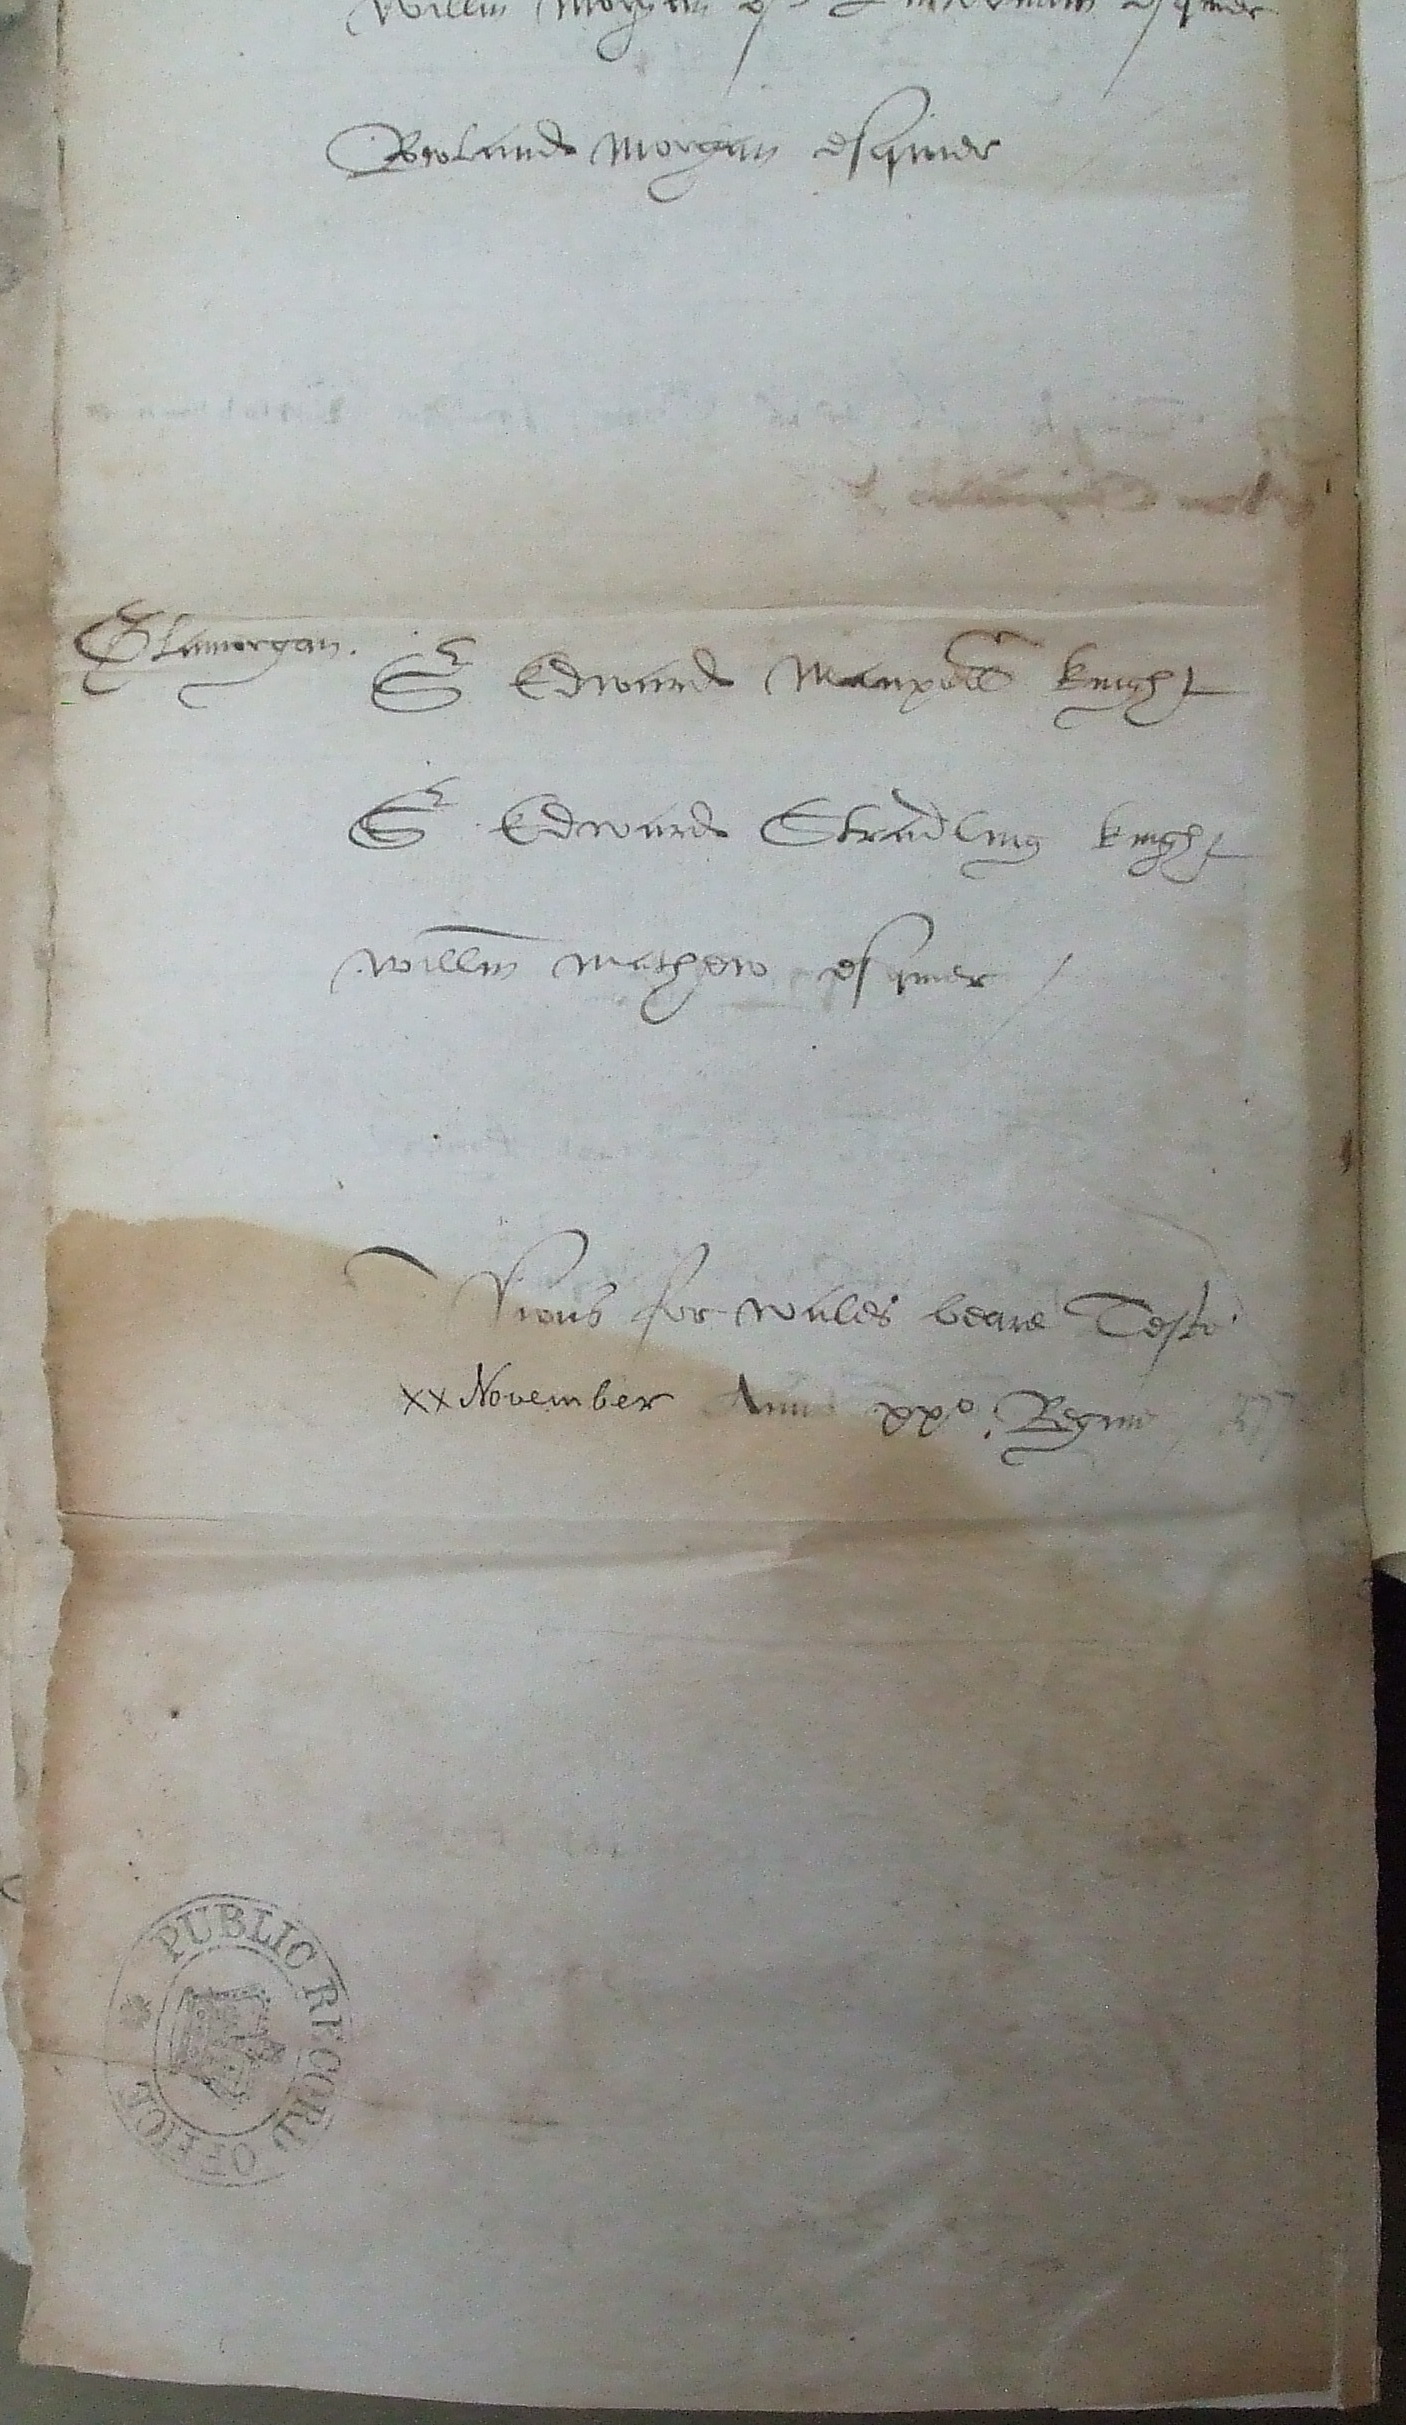 Willm Morgan of esquier
Rowland Morgan esquier
Glamorgan. Sr Edward Manxell knight
Sr Edward Stradling knight
Willm Mathew esquier
for wales beare Teste
xx November Anno xxo. Regine
PUBLIC RECORD OFFICE